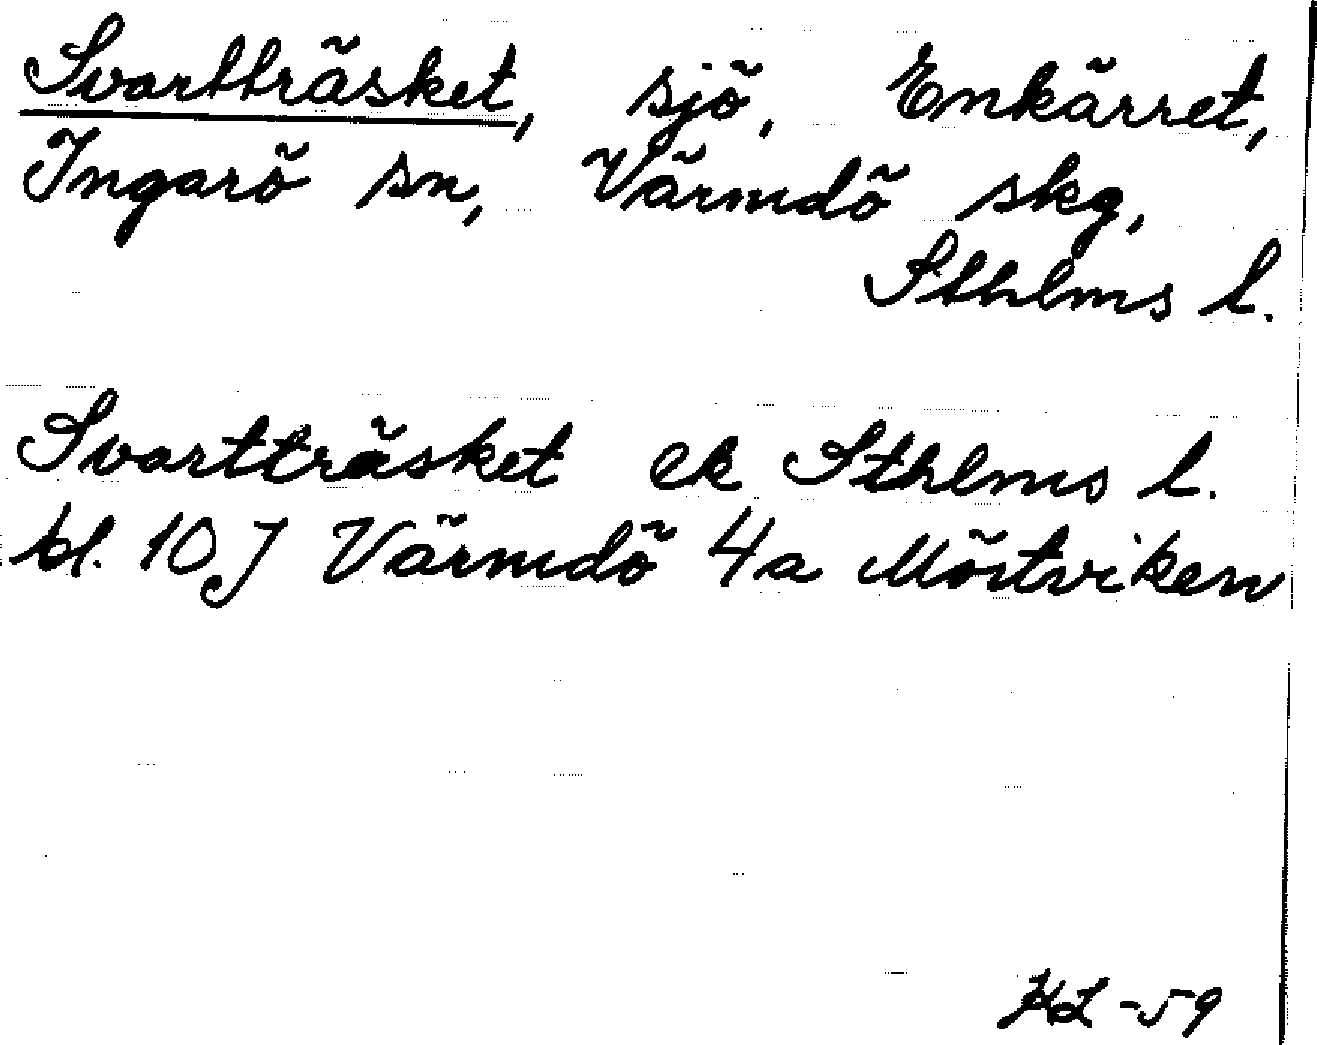 Svartträsket, sjö, Enkärret,
Ingarö sn, Värmdö skg,
Sthlms l.
Svartträsket ek Sthlms l.
bl. 10J Värmdö 4a Mörtviken
KL -59